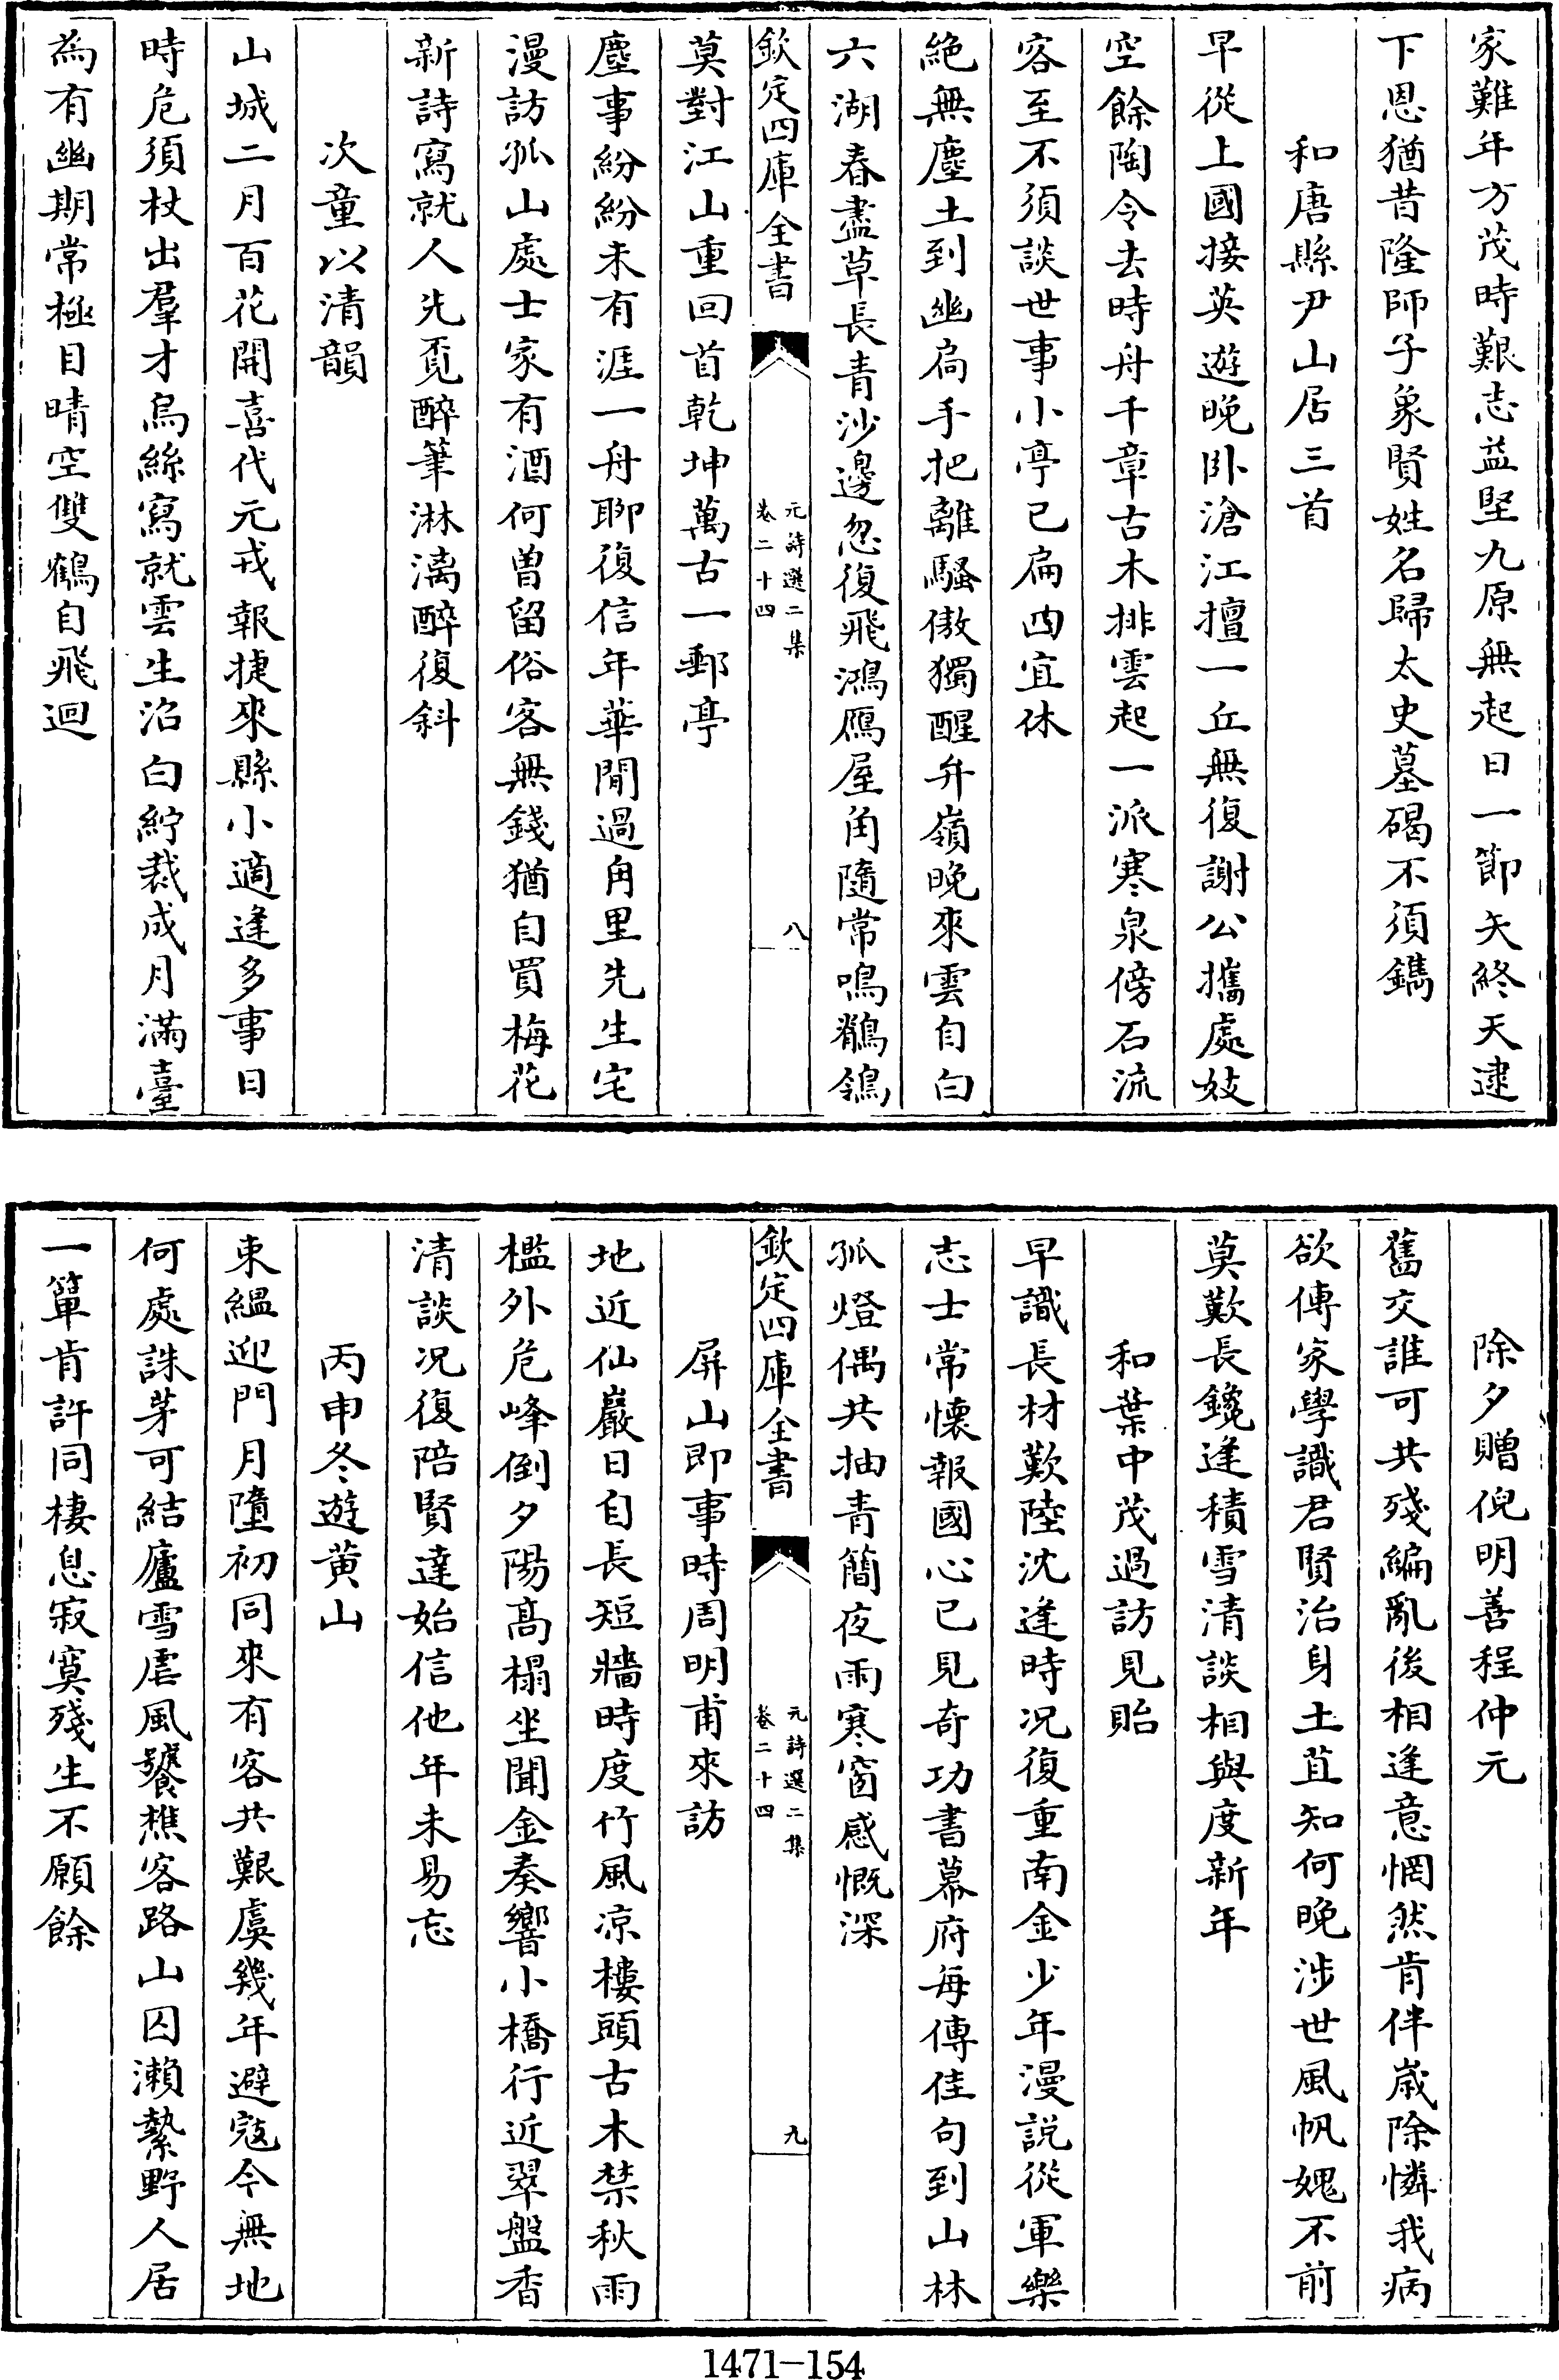 家難年方茂時艱志益堅九原無起日一節矢終天逮
下恩猶昔隆師子象賢姓名歸太史墓碣不須鐫
和唐縣尹山居三首
早從上國接英遊晚卧滄江擅一丘無復謝公攜處妓
空餘陶令去時舟千章古木排雲起一派寒泉傍石流
容至不須談世事小亭已扁四宜休
絶無塵土到幽扃手把離騷傲獨醒弁嶺晚來雲自白
六湖春盡草長青沙邊忽復飛鴻鴈屋角隨常鳴鶺鴒
欽定四庫全書
元詩選二集
卷二十四
八
莫對江山重回首乾坤萬古一郵亭
塵事紛紛未有涯一舟聊復信年華閒過甪里先生宅
漫訪孤山處士家有酒何曾留俗客無錢猶自買梅花
新詩寫就人先覓醉筆淋漓醉復斜
次童以清韻
山城二月百花開喜代元戎報捷來縣小適逢多事日
時危須杖出羣才烏絲寫就雲生沼白紵裁成月滿臺
為有幽期常極目晴空雙鶴自飛迴
除夕贈倪明善程仲元
舊交誰可共殘編亂後相逢意惘然肯伴歲除憐我病
欲傳家學識君賢治身土苴知何晚涉世風帆媿不前
莫歎長鑱逢積雪清談相與度新年
和葉中茂過訪見貽
早識長材歎陸沈逢時况復重南金少年漫說從軍樂
志士常懷報國心已見奇功書幕府每傳佳句到山林
孤燈偶共抽青簡夜雨寒窗感慨深
欽定四庫全書
元詩選二集
卷二十四
九
屏山即事時周明甫來訪
地近仙巖日自長短牆時度竹風凉樓頭古木禁秋雨
檻外危峰倒夕陽高榻坐聞金奏響小橋行近翠盤香
清談况復陪賢達始信他年未易忘
丙申冬遊黄山
束緼迎門月墮初同來有客共艱虞幾年避寇今無地
何處誅茅可結廬雪虐風饕樵客路山囚瀨縶野人居
一簞肯許同棲息寂寞殘生不願餘
1471-154